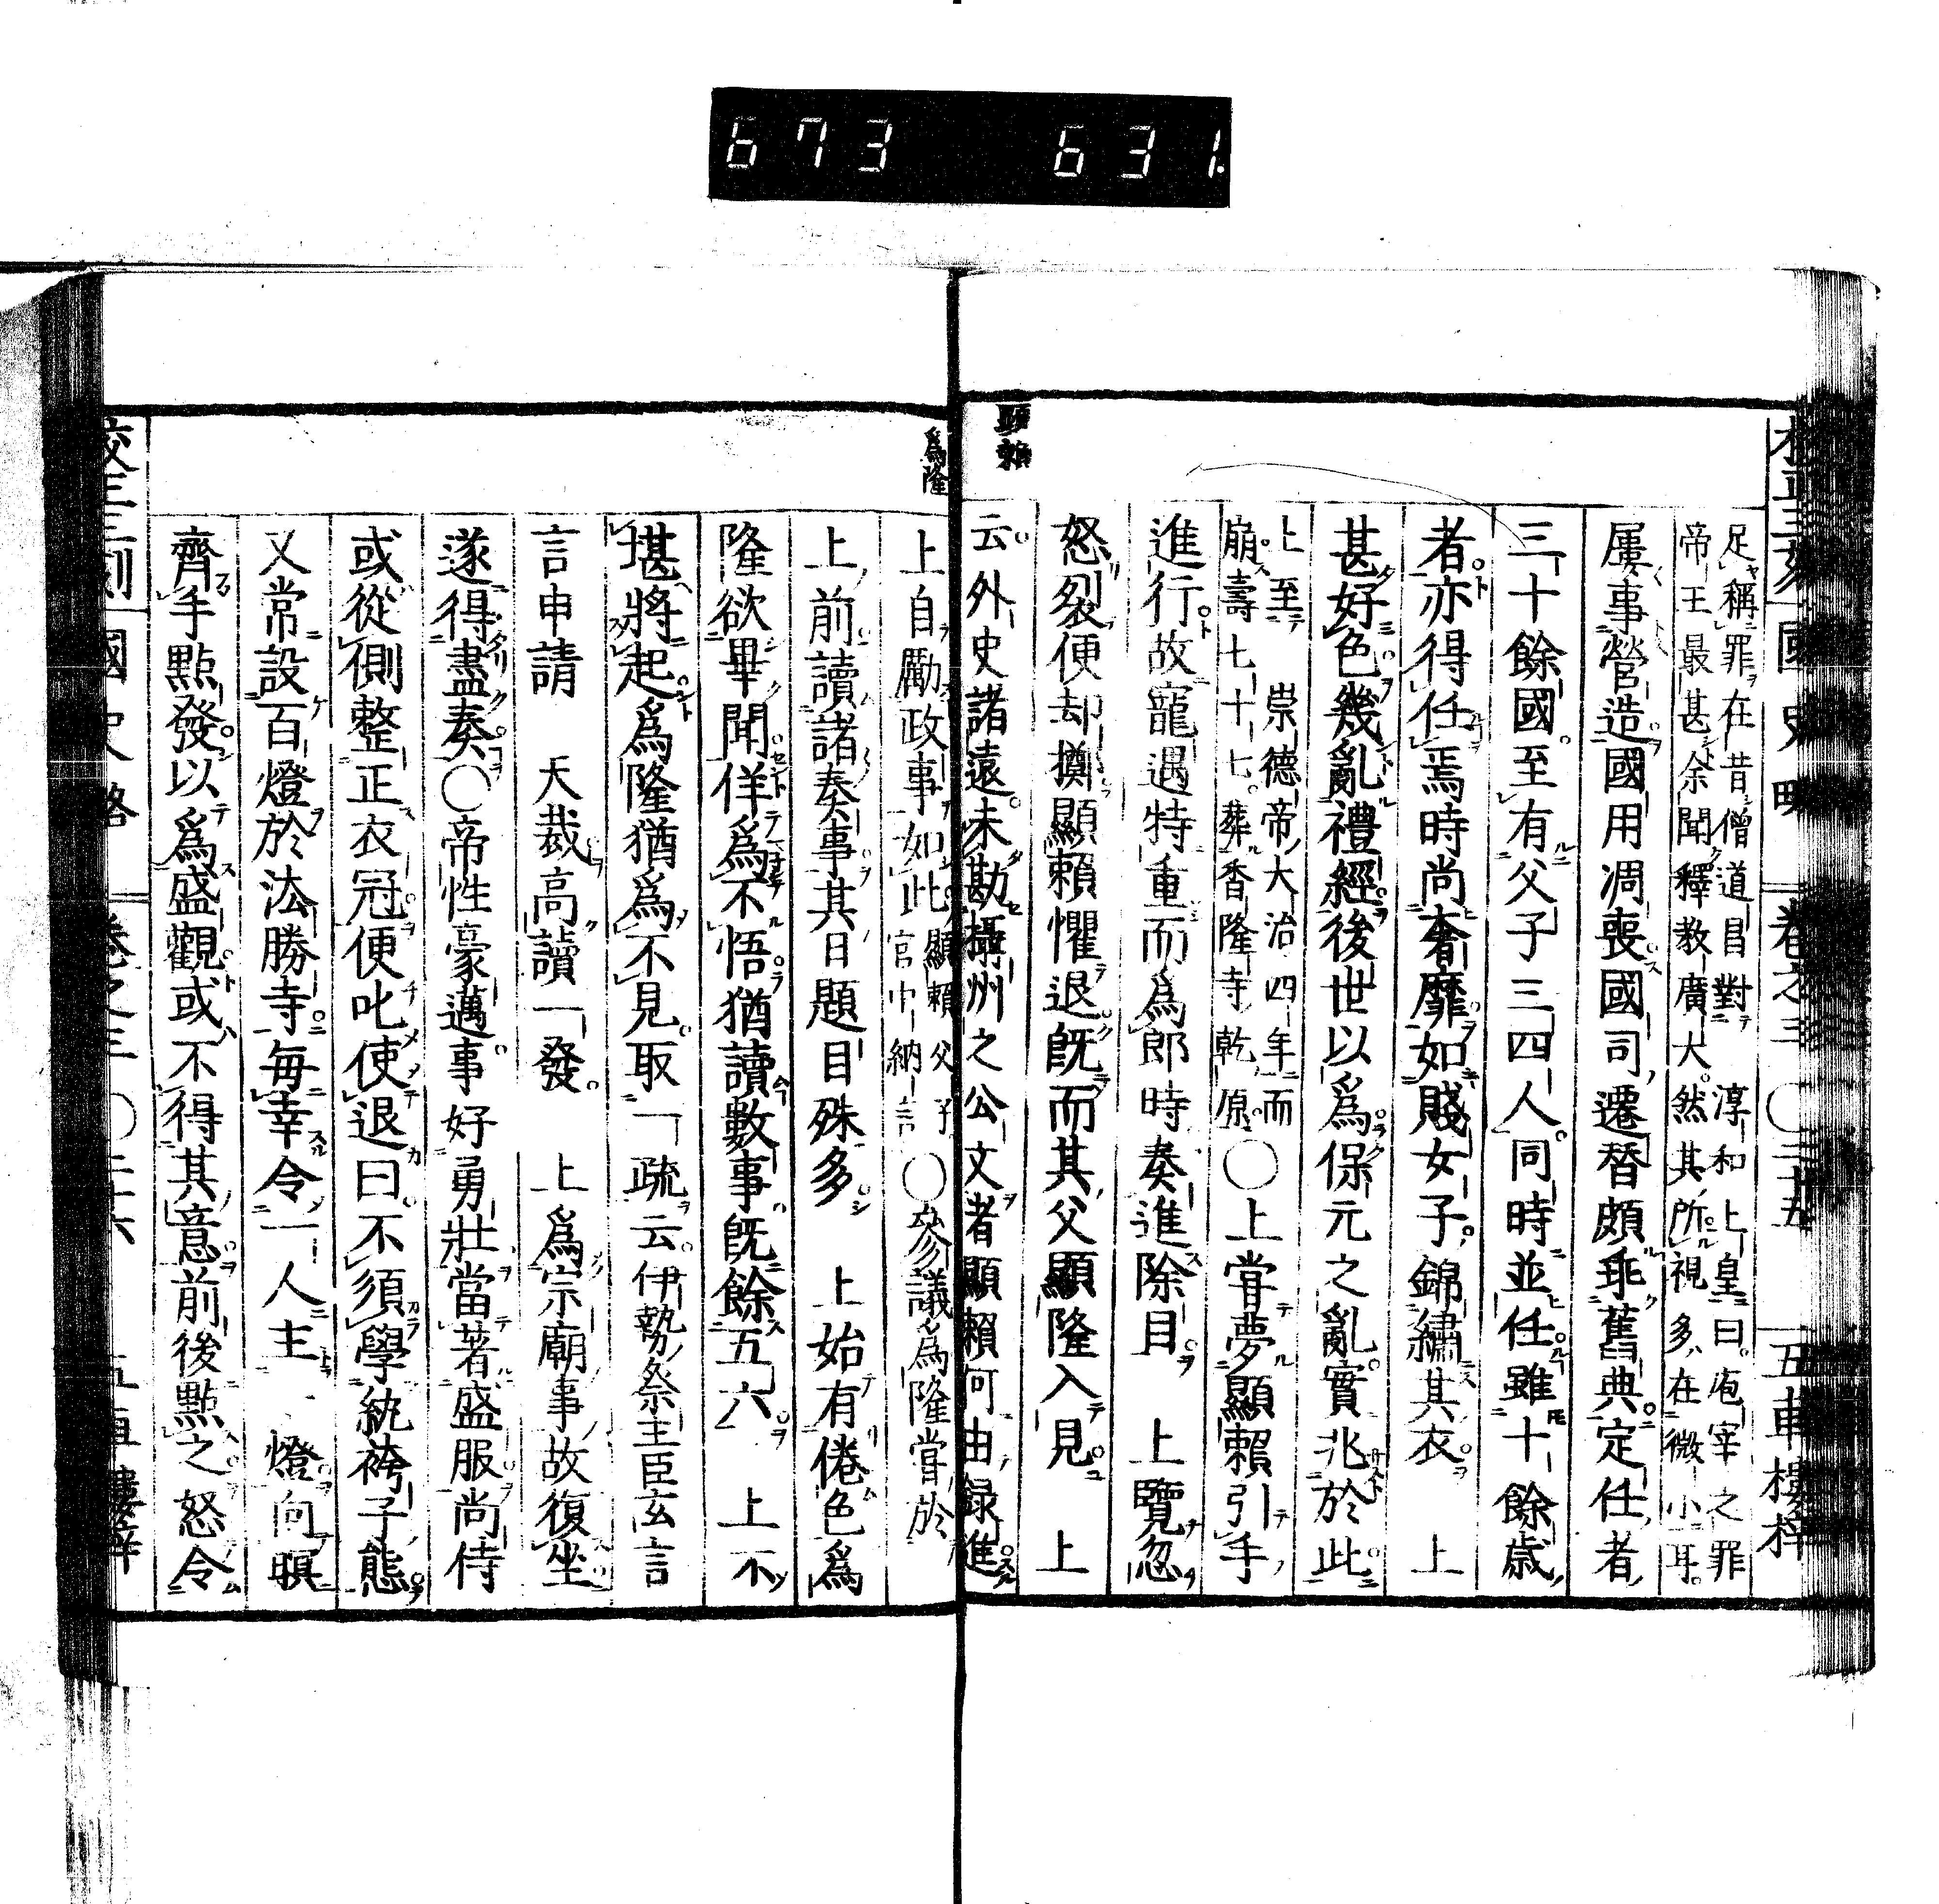 673 631.
校正三刻 國史略 卷之三 〇三十五 五車樓梓
足稱罪在昔僧道昌對 淳和上皇曰庖宰之罪
帝王最甚余聞釋教廣大然其所視多在微小耳
屢事營造國用凋喪國司遷替頗乖舊典定任者
三十餘國至有父子三四人同時並任雖十餘歲
者亦得任焉時尚奢靡如賤女子錦繡其衣 上
甚好色幾亂禮經後世以爲保元之亂實兆於此
上至 崇德帝大治四年而
崩壽七十七葬香隆寺乾原
〇上嘗夢顯賴引手
進行故寵遇特重而爲郎時奏進除目 上覽忽
怒裂便却擲顯賴懼退既而其父顯隆入見 上
顯賴
云外史諸遠未勘攝州之公文者顯賴何由録進
爲隆
上自勵政事如此
顯賴父子
官中納言
〇參議爲隆嘗於
上前讀諸奏事其日題目殊多 上始有倦色爲
隆欲畢聞佯爲不悟猶讀數事既餘五六 上不
堪將起爲隆猶爲不見取一疏云伊勢祭主臣玄言
言申請 天裁高讀一發 上爲宗廟事故復坐
遂得盡奏〇帝性豪邁事好勇壯當著盛服尚侍
或從側整正衣冠便叱使退曰不須學紈袴子態
又常設百燈於法勝寺每幸令一人主一燈向暝
齊手點發以爲盛觀或不得其意前後點之怒令
校正三刻 國史略 卷之三 〇三十六 五車樓梓